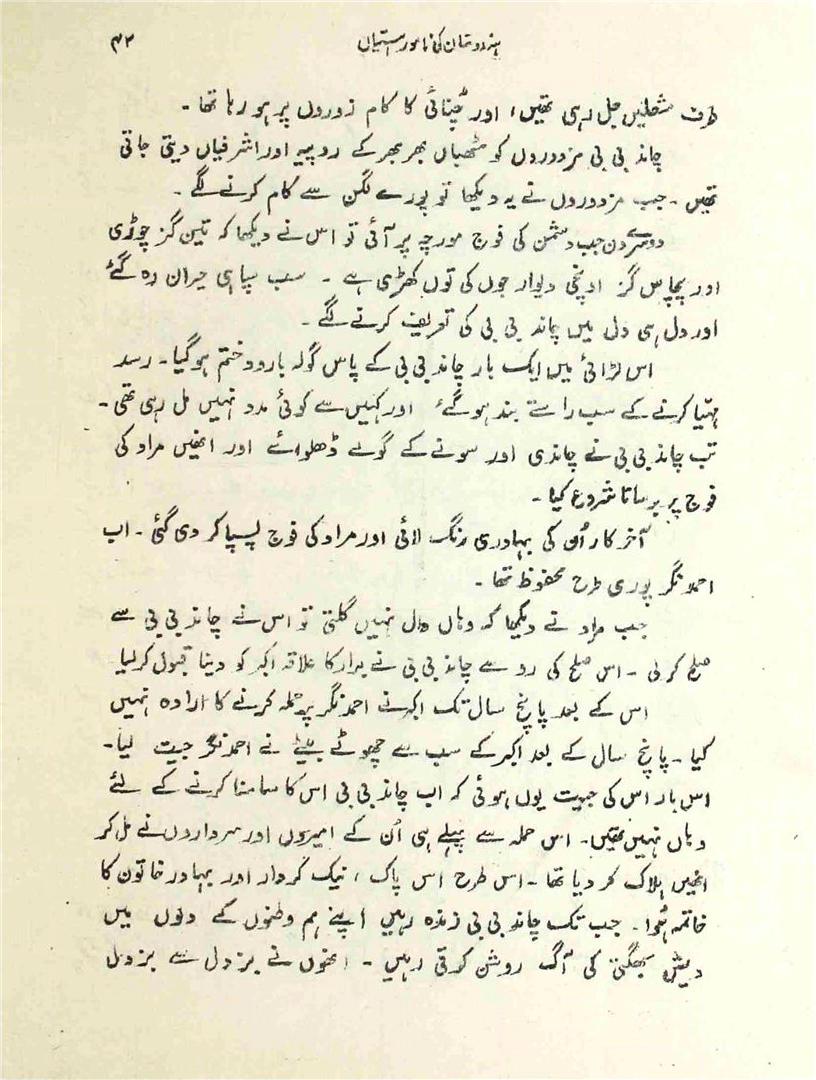 ہندوستان کی نامور ہستیاں ۴۲
طرف مشعلیں جل رہی تھیں، اور چُنائی کا کام زوروں پر ہو رہا تھا۔
چاند بی بی مزدوروں کو مٹھیاں بھر بھر کے روپیہ اور اشرفیاں دیتی جاتی
تھیں۔ جب مزدوروں نے یہ دیکھا تو پورے لگن سے کام کرنے لگے۔
دوسرے دن جب دشمن کی فوج مورچہ پر آئی تو اس نے دیکھا کہ تین گز چوڑی
اور پچاس گز اونچی دیوار جوں کی توں کھڑی ہے۔ سب سپاہی حیران رہ گئے
اور دل ہی دل میں چاند بی بی کی تعریف کرنے لگے۔
اس لڑائی میں ایک بار چاند بی بی کے پاس گولہ بارود ختم ہو گیا۔ رسد
مہیّا کرنے کے سب راستے بند ہو گئے اور کہیں سے کوئی مدد نہیں مل رہی تھی۔
تب چاند بی بی نے چاندی اور سونے کے گولے ڈھلوائے اور انھیں مراد کی
فوج پر برسانا شروع کیا۔
آخر کار اُن کی بہادری رنگ لائی اور مراد کی فوج پسپا کر دی گئی۔ اب
احمد نگر پوری طرح محفوظ تھا۔
جب مراد نے دیکھا کہ وہاں دال نہیں گلتی تو اس نے چاند بی بی سے
صلح کر لی۔ اس صلح کی رو سے چاند بی بی نے برار کا علاقہ اکبر کو دینا قبول کر لیا
اس کے بعد پانچ سال تک اکبر نے احمد نگر پر حملہ کرنے کا ارادہ نہیں
کیا۔ پانچ سال کے بعد اکبر کے سب سے چھوٹے بیٹے نے احمد نگر جیت لیا۔
اس بار اس کی جیت یوں ہوئی کہ اب چاند بی بی اس کا سامنا کرنے کے لئے
وہاں نہیں تھیں۔ اس حملہ سے پہلے ہی اُن کے امیروں اور سرداروں نے مل کر
انھیں ہلاک کر دیا تھا۔ اس طرح اس پاک، نیک کردار اور بہادر خاتون کا
خاتمہ ہُوا۔ جب تک چاند بی بی زندہ رہیں اپنے ہم وطنوں کے دلوں میں
دیش بھگتی کی آگ روشن کرتی رہیں۔ انھوں نے بزدل سے بزدل